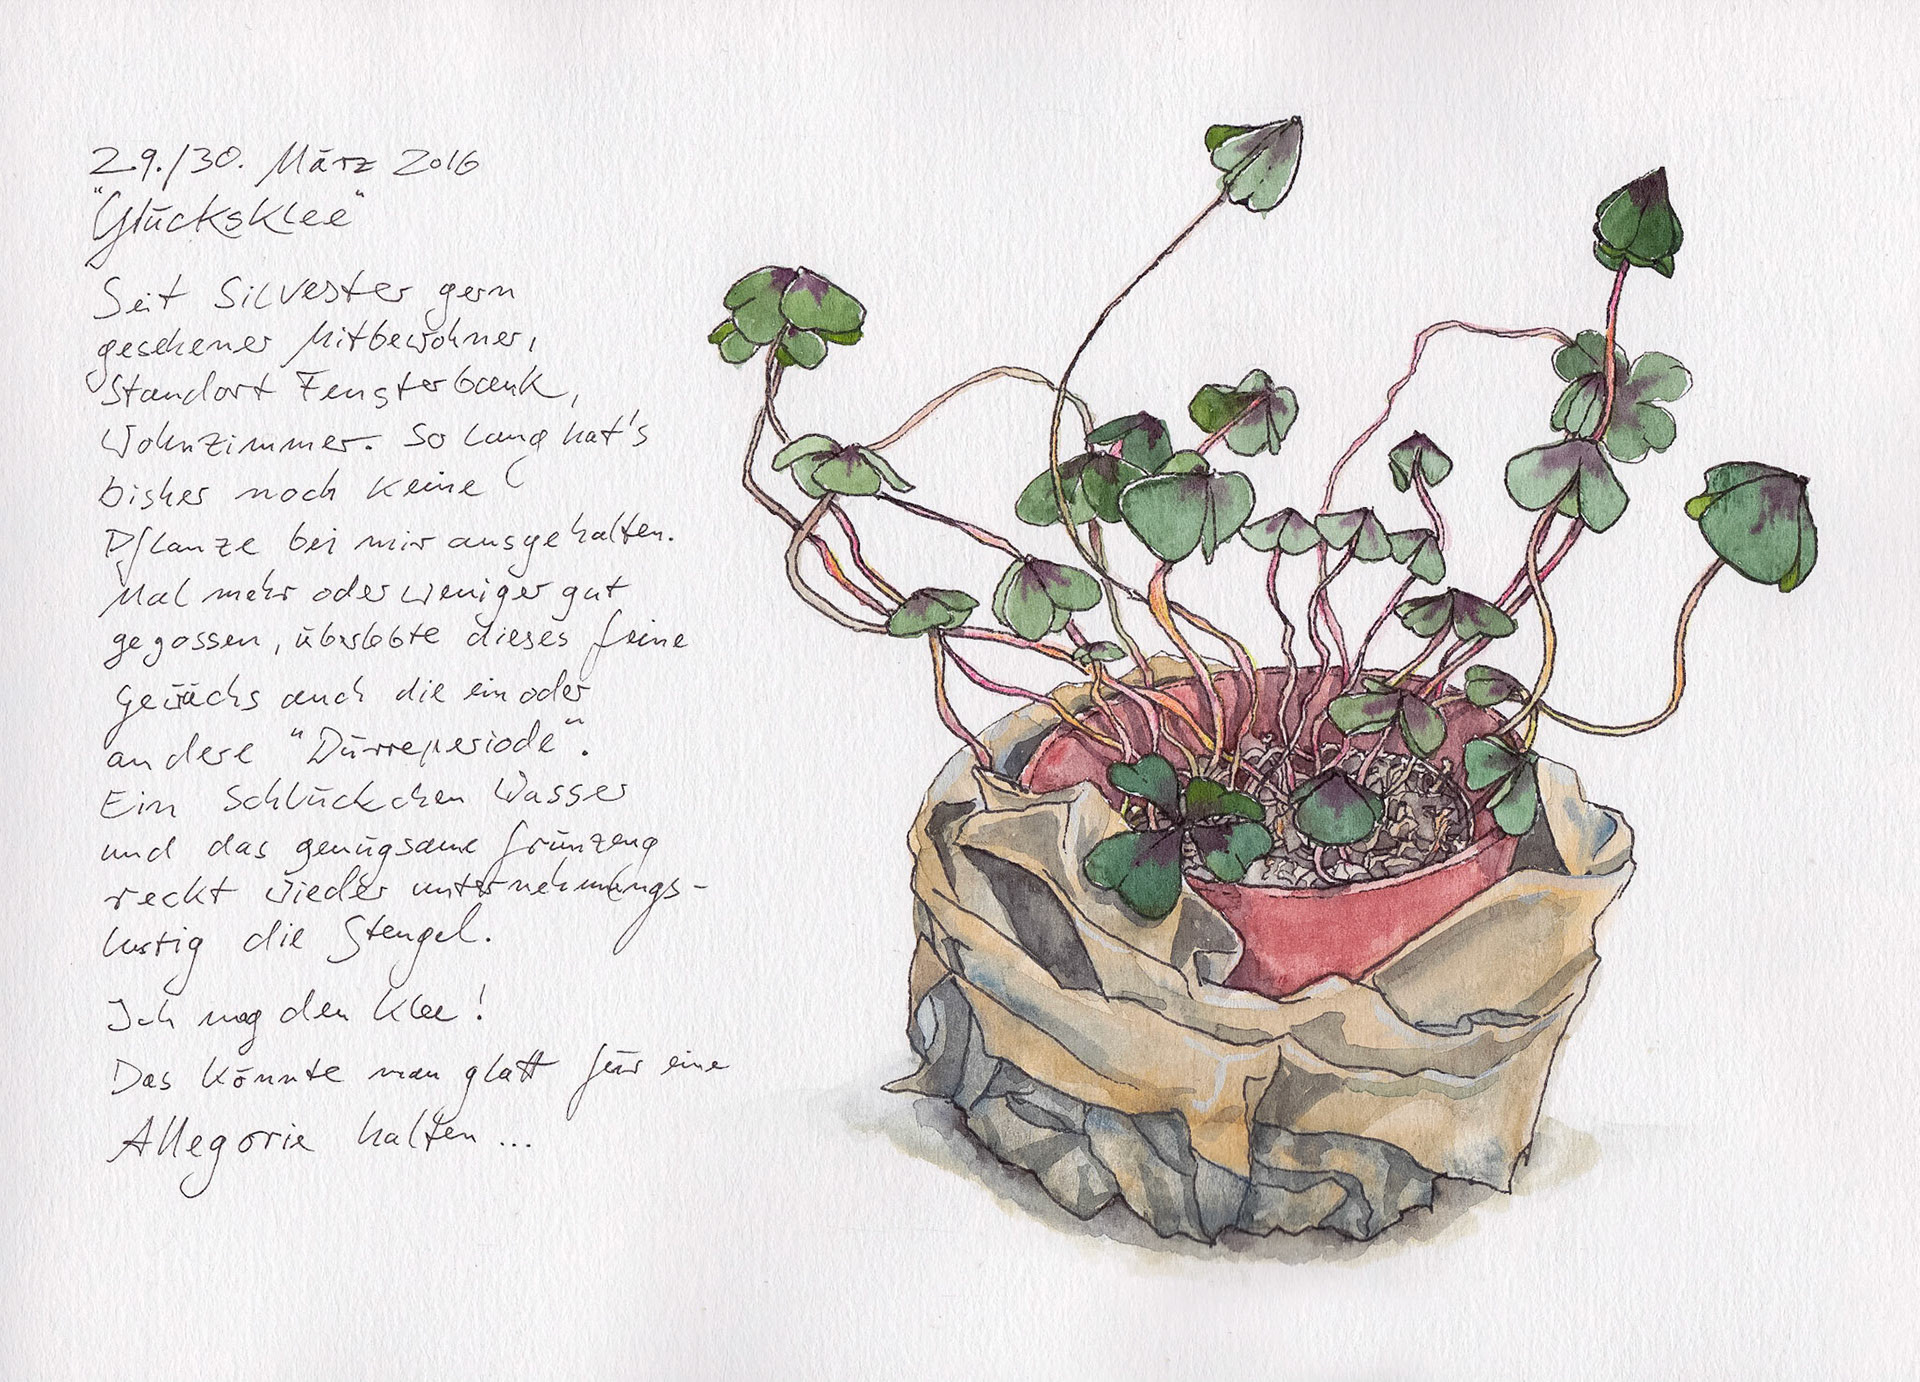 29./30. März 2016
"Glücksklee"
Seit Silvester gern
gesehener Mitbewohner,
Standort Fensterbank,
Wohnzimmer. So lang hat's
bisher noch keine
Pflanze bei mir ausgehalten.
Mal mehr oder weniger gut
gegossen, überlebte dieses feine
Gewächs auch die ein oder
andere "Dürreperiode".
Ein Schlückchen Wasser
und das genügsame Grünzeug
reckt wieder unternehmungs-
lustig die Stengel.
Ich mag den Klee!
Das könnte man glatt für eine
Allegorie halten...